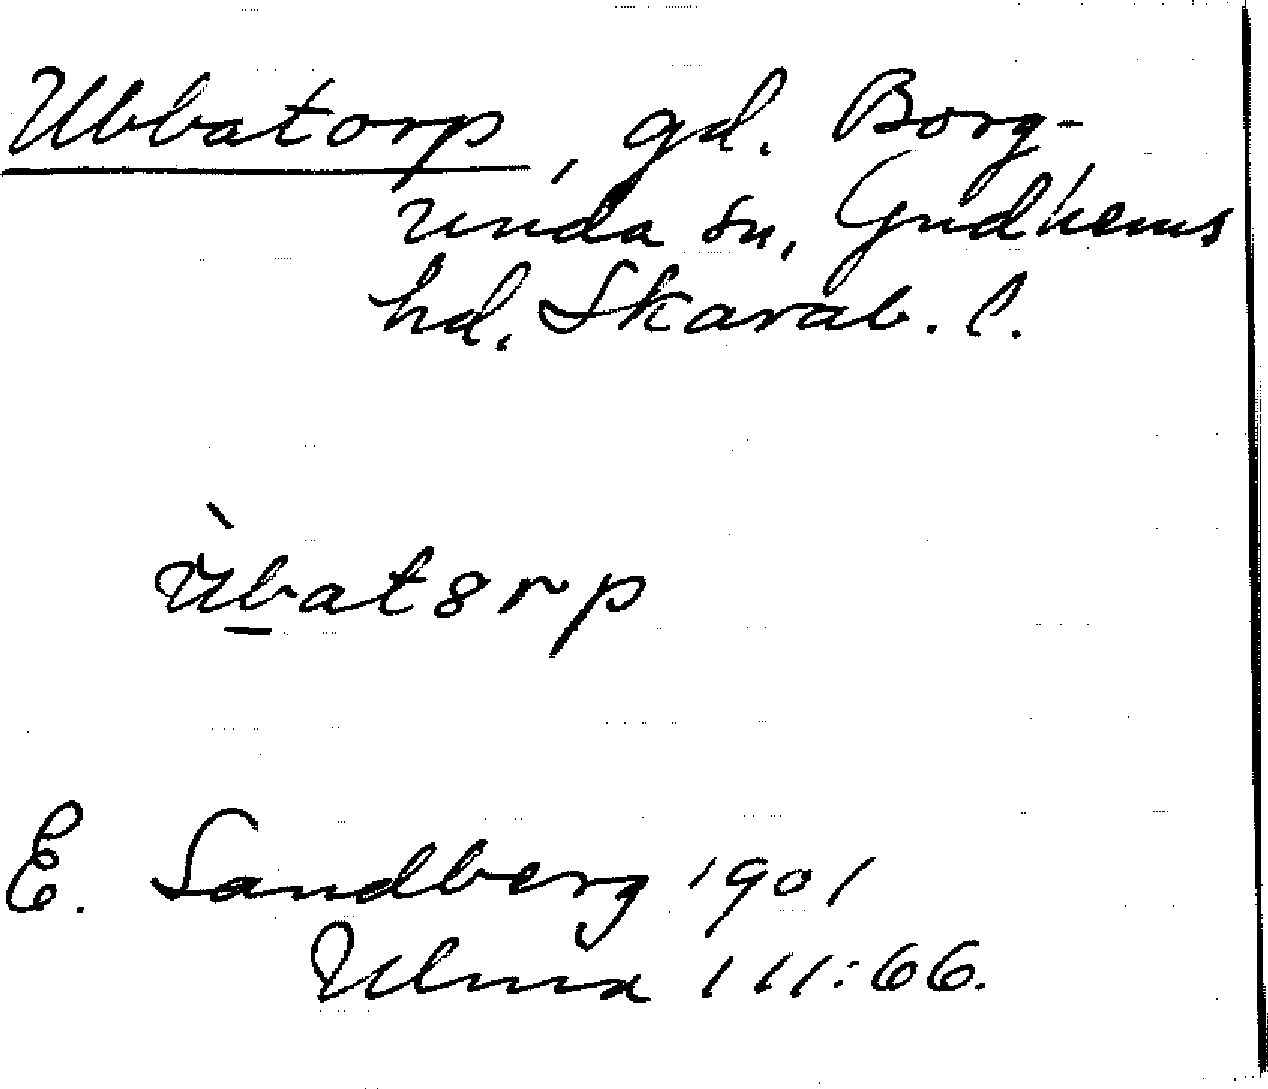 Ubbatorp, gd. Borg-
unda sn, Gudhems
hd. Skarab. l.
E. Sandberg 1901
Ulma 111:66.